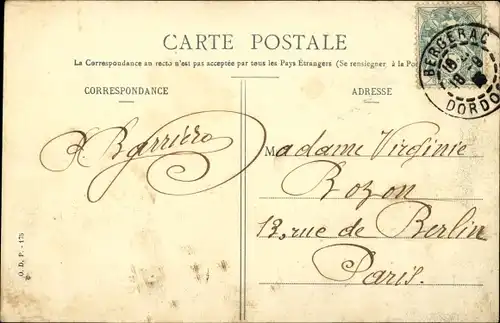 CARTE POSTALE
La Correspondance au recto n'est pas acceptée par tous les Pays Étrangers (Se renseigner à la Po
CORRESPONDANCE
ADRESSE
BERGERAC
18
DORDO
Barrière
Madame Virginie
Rozon
13, rue de Berlin
Paris.
O. D. P. - 173